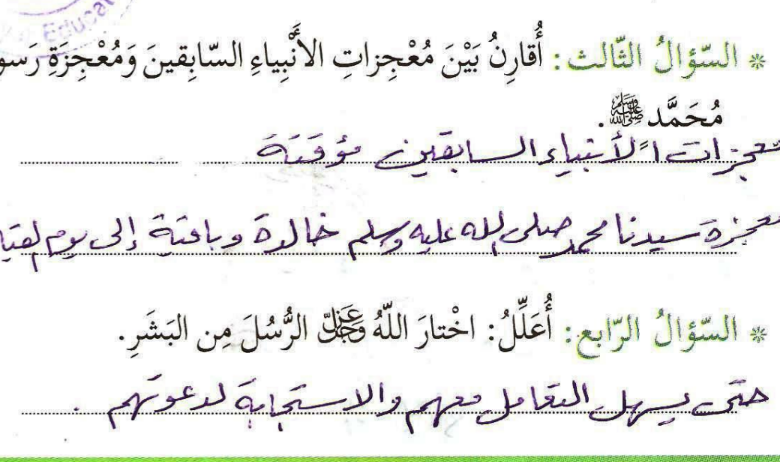 Educa
* السّؤالُ الثّالث: أُقارِنُ بَيْنَ مُعْجِزاتِ الأَنْبِياءِ السّابِقينَ وَمُعْجِزَةِ رَسو
مُحَمَّد ﷺ.
معجزات الأنبياء السابقين مؤقتة
معجزة سيدنا محمد صلى الله عليه وسلم خالدة وباقية إلى يوم القيا
* السّؤالُ الرّابع: أُعَلِّلُ: اخْتارَ اللّهُ عَزَّ وَجَلَّ الرُّسُلَ مِن البَشَرِ.
حتى يسهل التعامل معهم والاستجابة لدعوتهم .